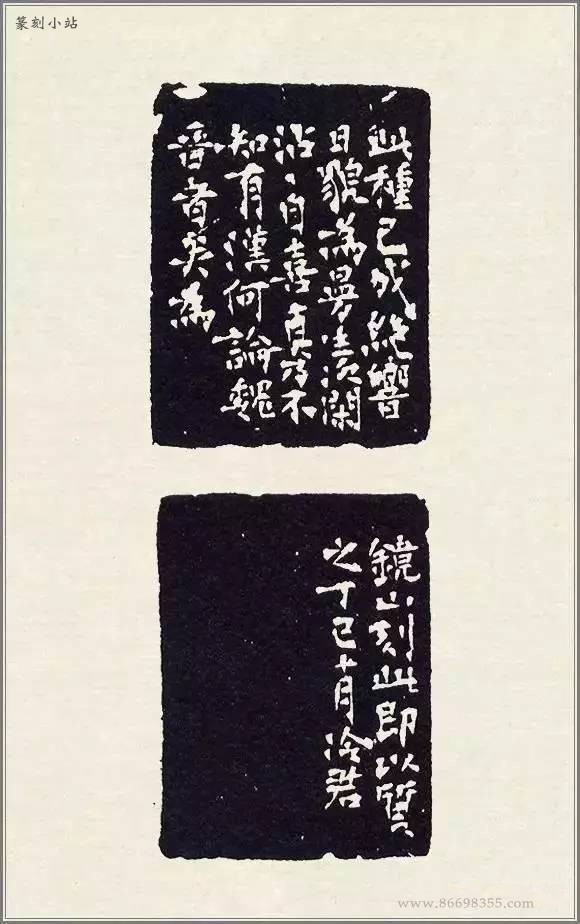 篆刻小站
此種已成絕響
日貌為曼生次閑
沾沾自喜真乃不
知有漢何論魏
晉者矣為
鏡山刻此即以質
之丁巳十月冷君
www.86698355.com